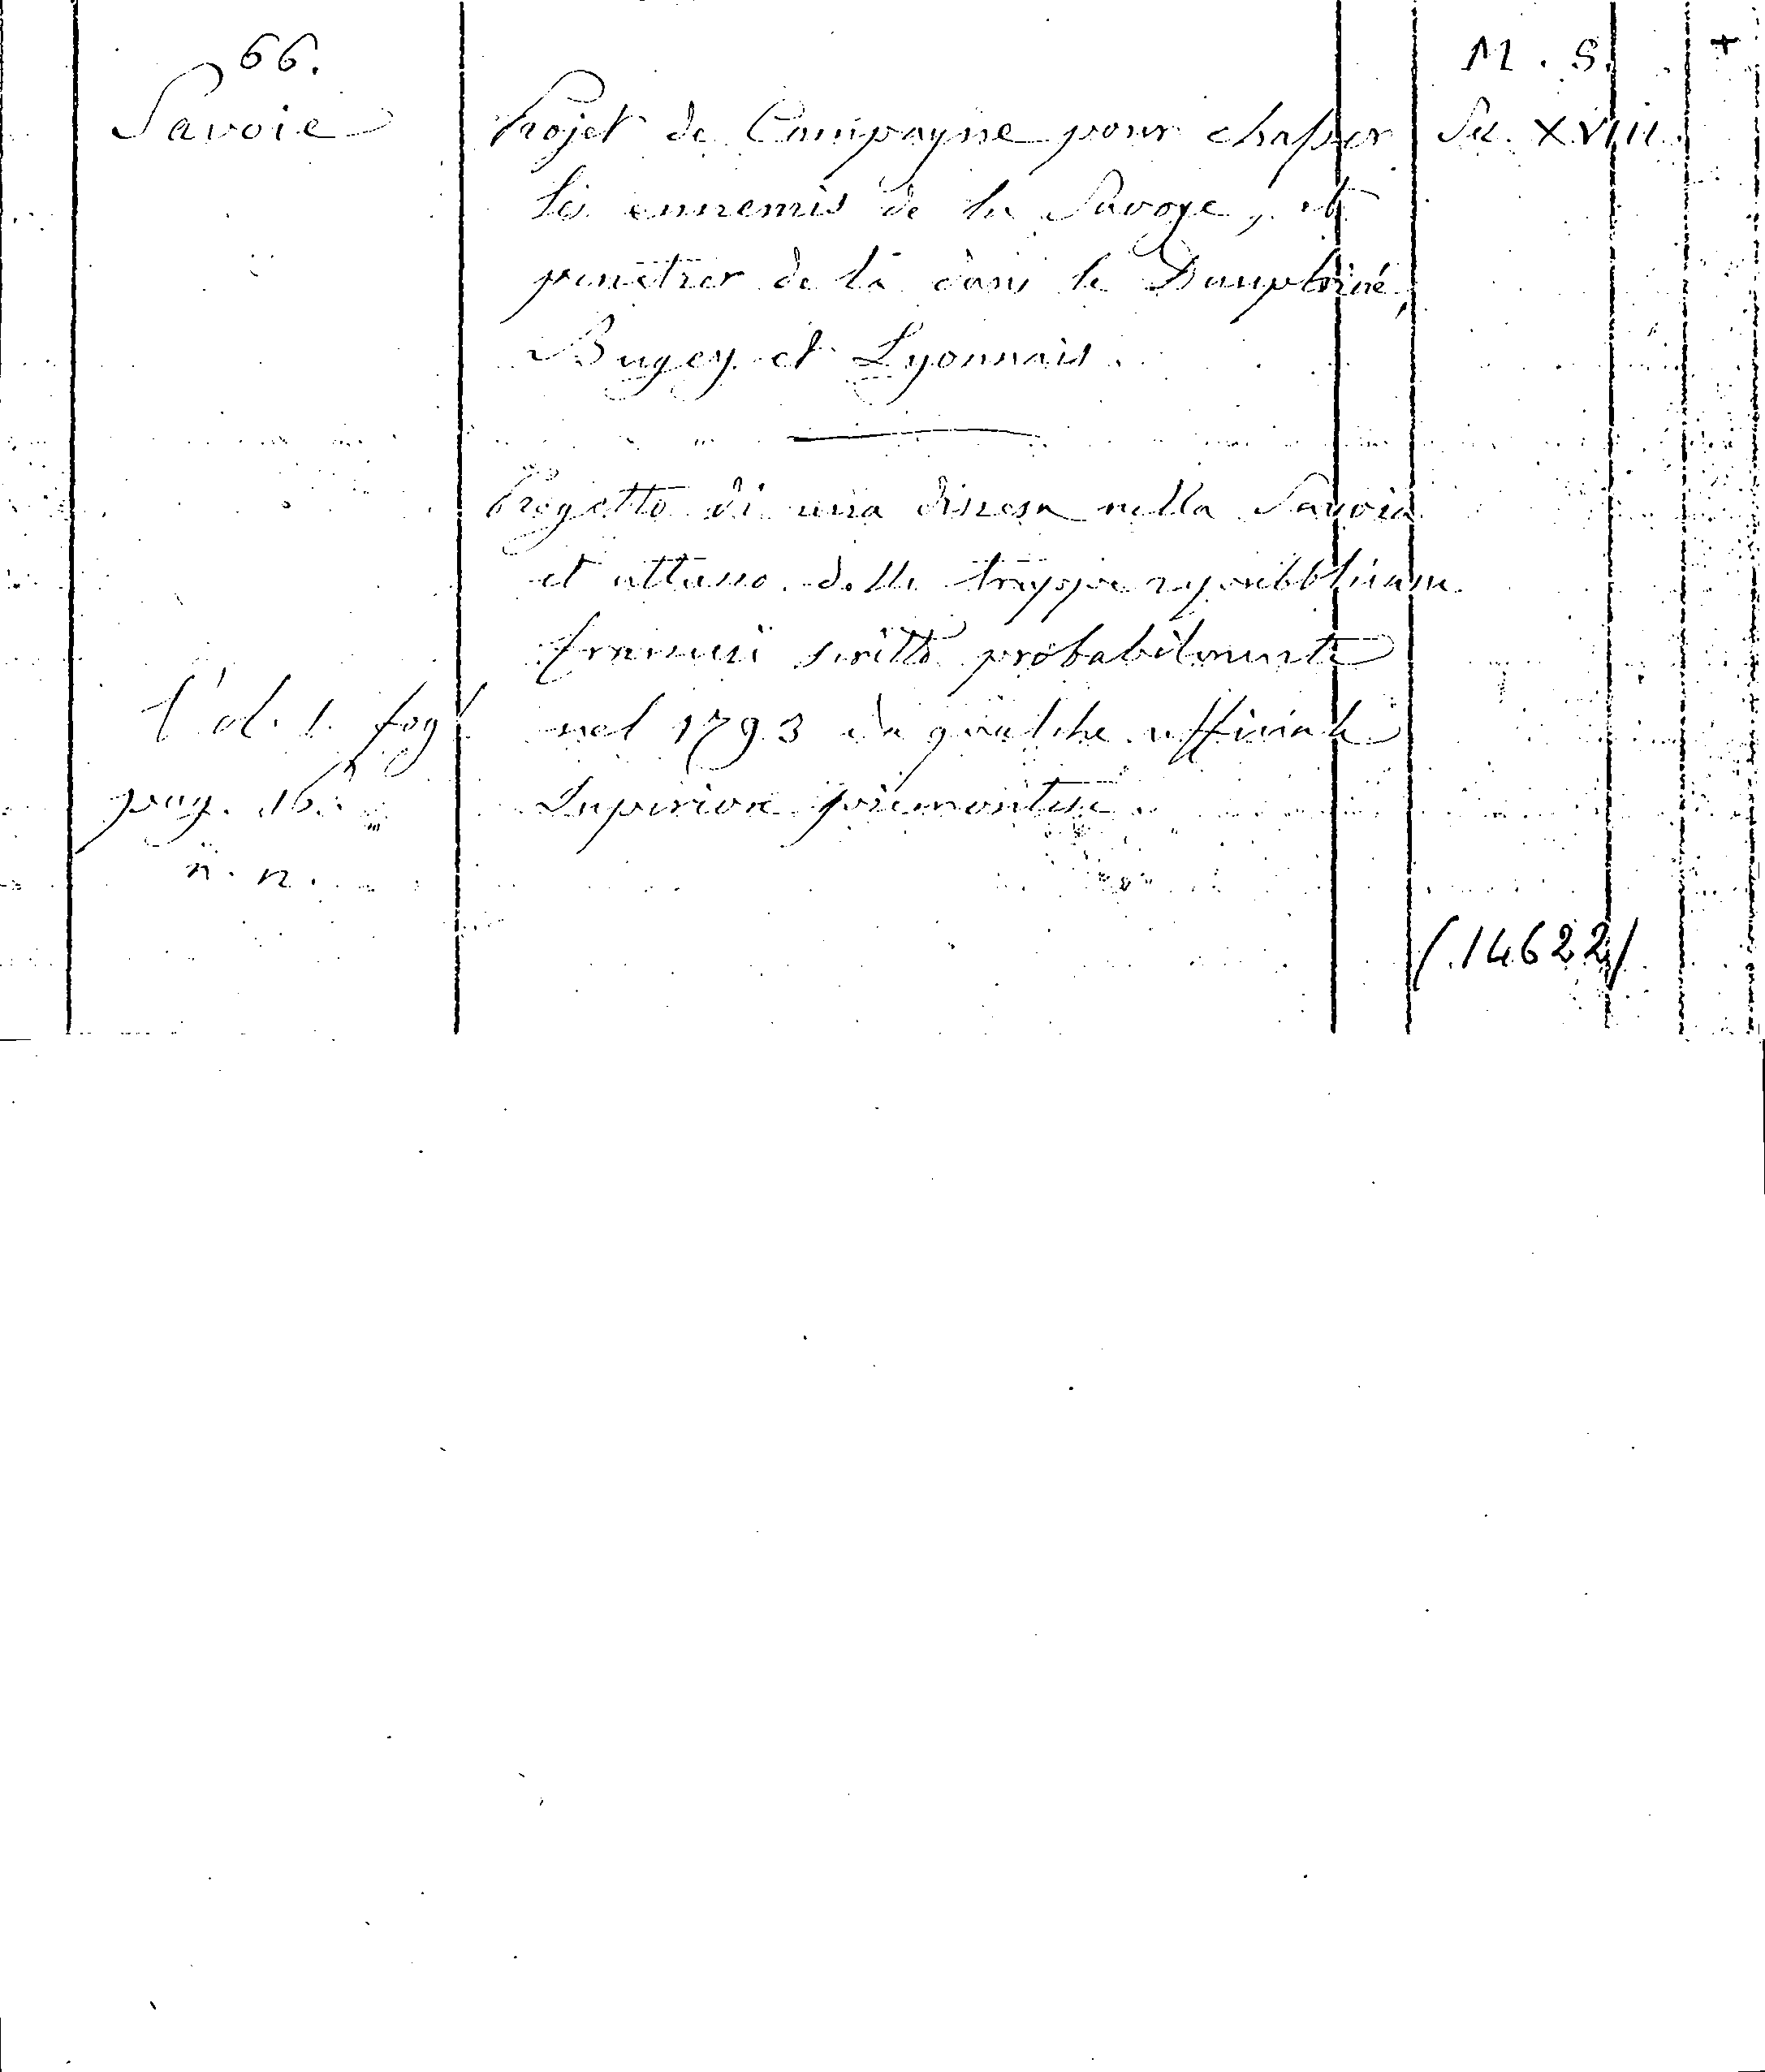 66.
Savoie
Vol. 1. fogl.
pag. 16.
n. n.
Projet de Campagne pour chasser
les ennemis de la Savoye, et
penétrer de là dans le Dauphiné,
Bugey et Lyonnais.
Progetto di una discesa nella Savoia
et attacco delle truppe repubblicane
francesi scritto probabilmente
nel 1793 da qualche ufficiale
Superiore piemontese.
M. S. +
Sec. XVIII.
(14622)